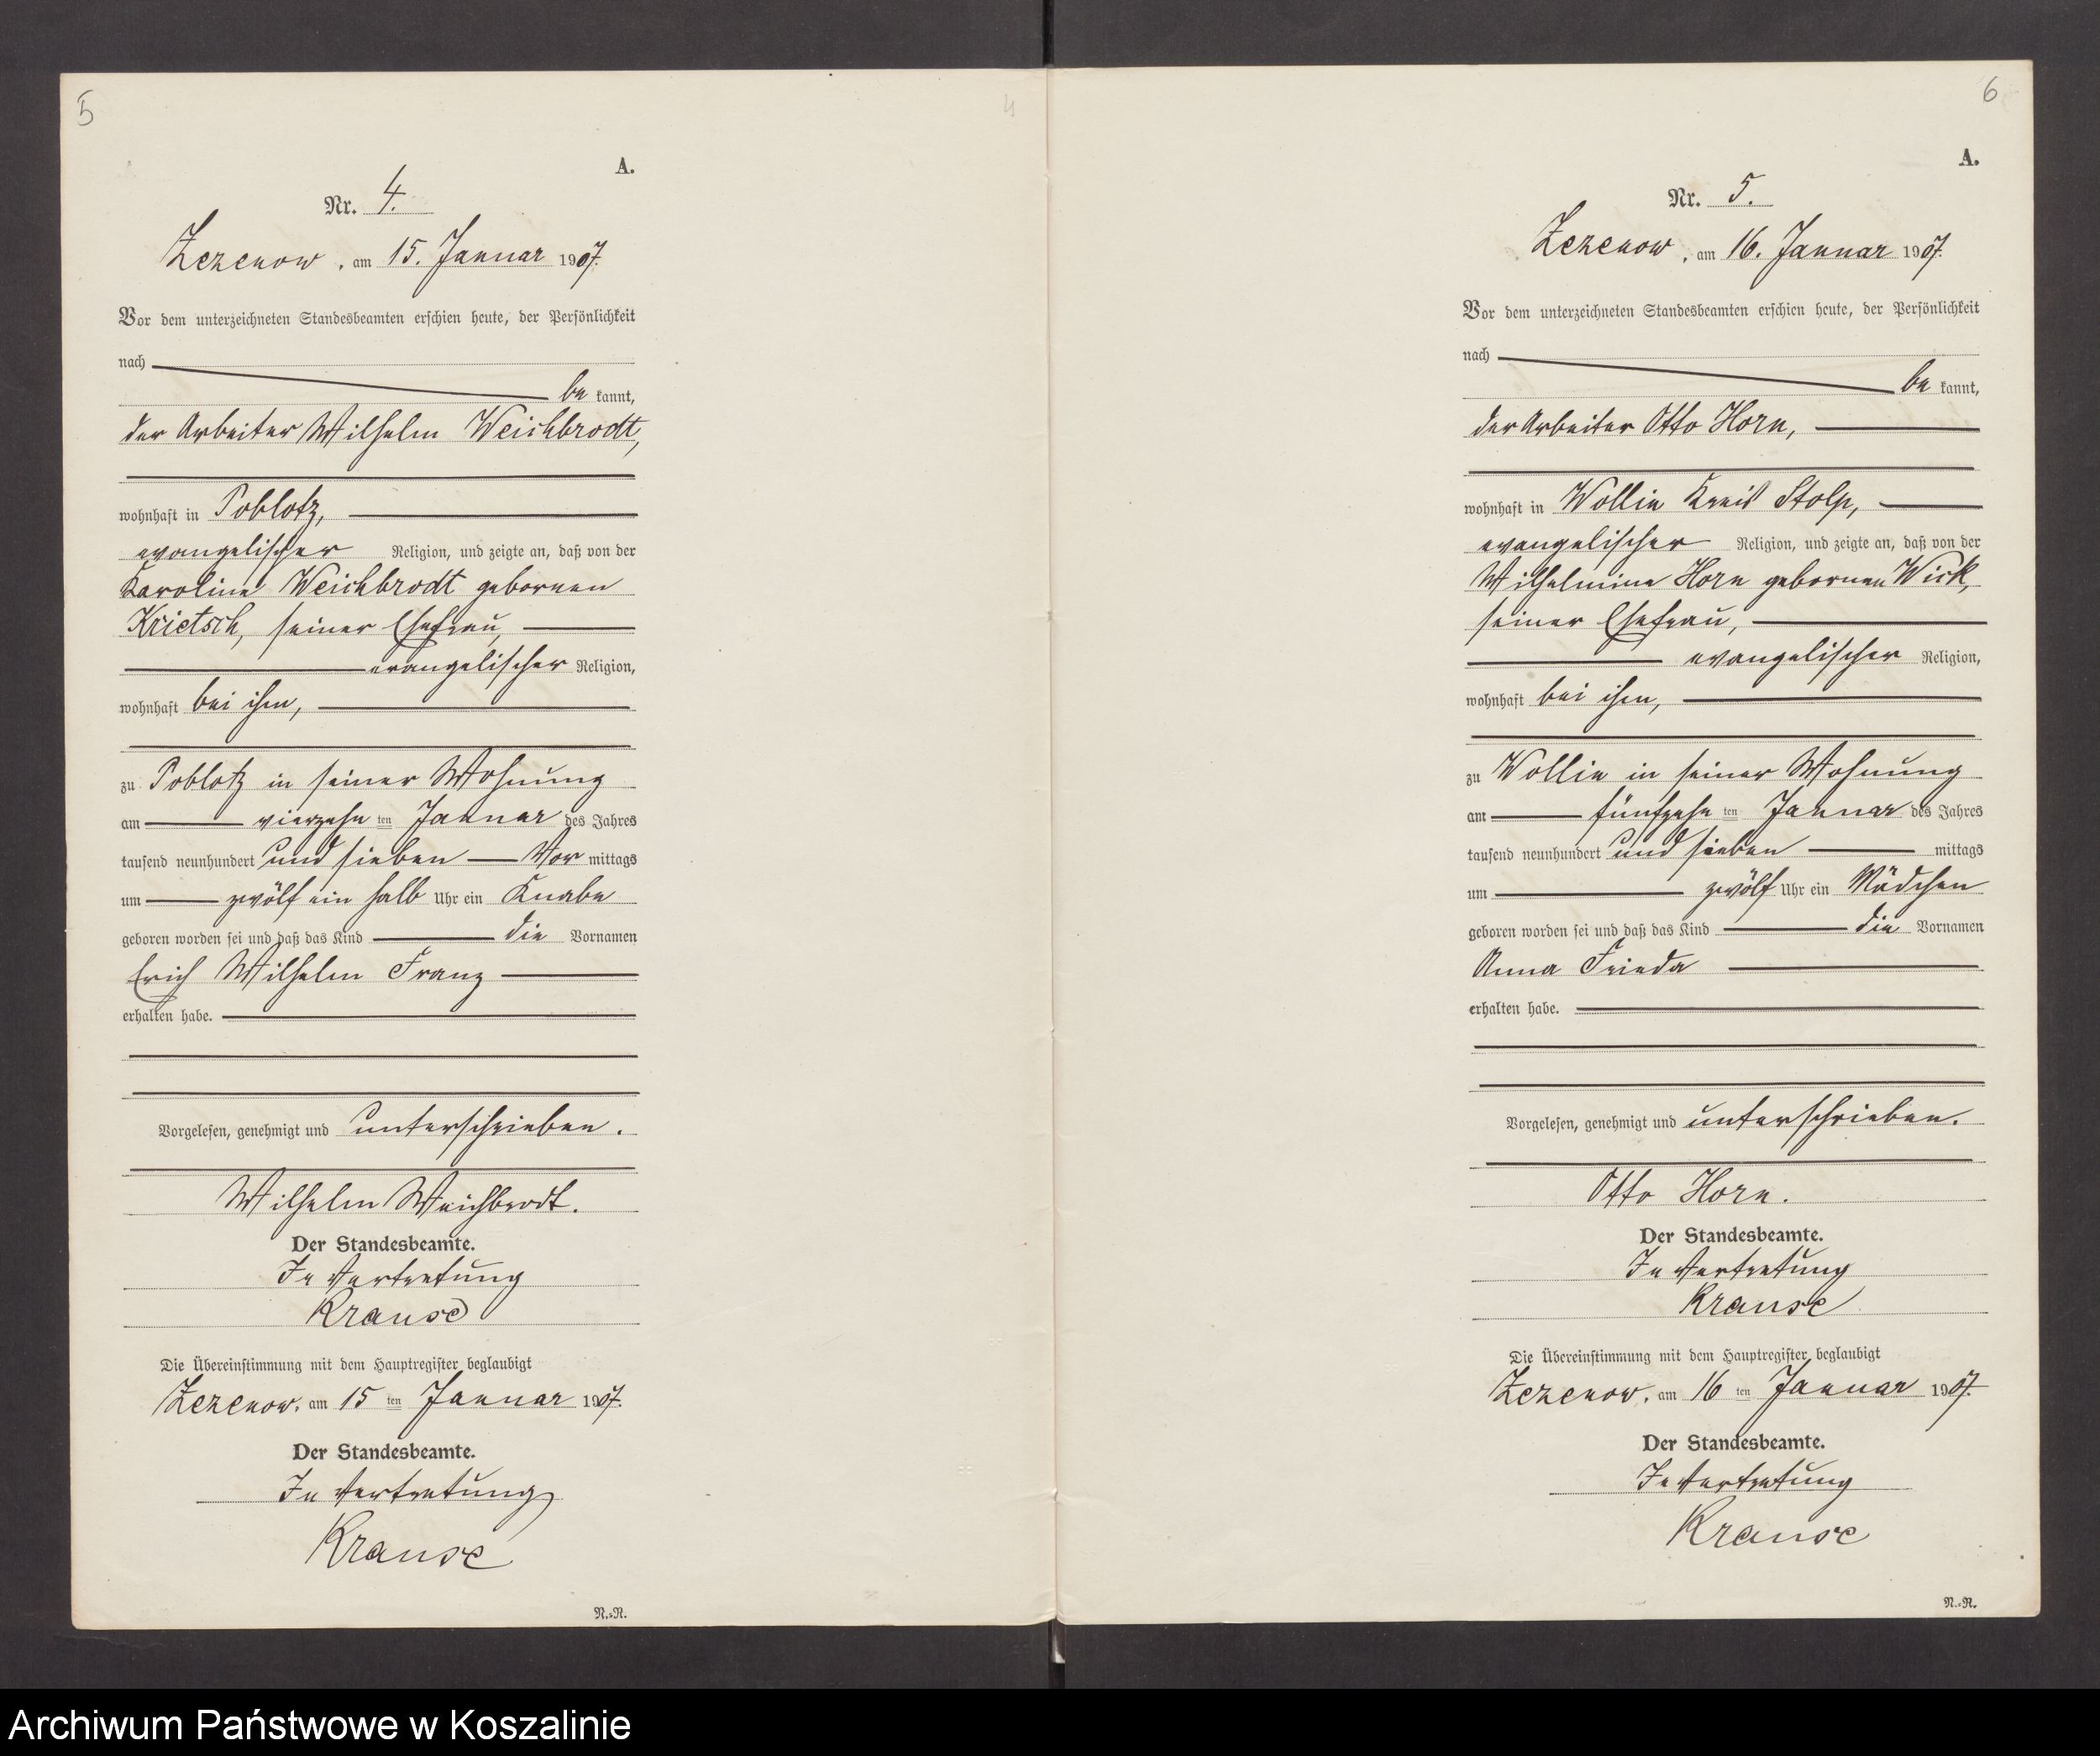 5
4
A.
Nr. 4.
Zezenow, am 15. Januar 1907.
Vor dem unterzeichneten Standesbeamten erschien heute, der Persönlichkeit
nach
be kannt,
der Arbeiter Wilhelm Weichbrodt,
wohnhaft in Poblotz,
evangelischer Religion, und zeigte an, daß von der
Karoline Weichbrodt gebornen
Krietsch, seiner Ehefrau,
evangelischer Religion,
wohnhaft bei ihm,
zu Poblotz in seiner Wohnung
am vierzehn ten Januar des Jahres
tausend neunhundert und sieben Vor mittags
um zwölf ein halb Uhr ein Knabe
geboren worden sei und daß das Kind die Vornamen
Erich Wilhelm Franz
erhalten habe.
Vorgelesen, genehmigt und unterschrieben.
Wilhelm Weichbrodt.
Der Standesbeamte.
In Vertretung
Krause
Die Übereinstimmung mit dem Hauptregister beglaubigt
Zezenow, am 15 ten Januar 1907.
Der Standesbeamte.
In Vertretung
Krause
N.-R.
6
A.
Nr. 5.
Zezenow, am 16. Januar 1907.
Vor dem unterzeichneten Standesbeamten erschien heute, der Persönlichkeit
nach
be kannt,
der Arbeiter Otto Horn,
wohnhaft in Wollin Kreis Stolp,
evangelischer Religion, und zeigte an, daß von der
Wilhelmine Horn gebornen Wick,
seiner Ehefrau,
evangelischer Religion,
wohnhaft bei ihm,
zu Wollin in seiner Wohnung
am fünfzehn ten Januar des Jahres
tausend neunhundert und sieben mittags
um zwölf Uhr ein Mädchen
geboren worden sei und daß das Kind die Vornamen
Anna Frieda
erhalten habe.
Vorgelesen, genehmigt und unterschrieben.
Otto Horn.
Der Standesbeamte.
In Vertretung
Krause
Die Übereinstimmung mit dem Hauptregister beglaubigt
Zezenow, am 16 ten Januar 1907.
Der Standesbeamte.
In Vertretung
Krause
N.-R.
Archiwum Państwowe w Koszalinie